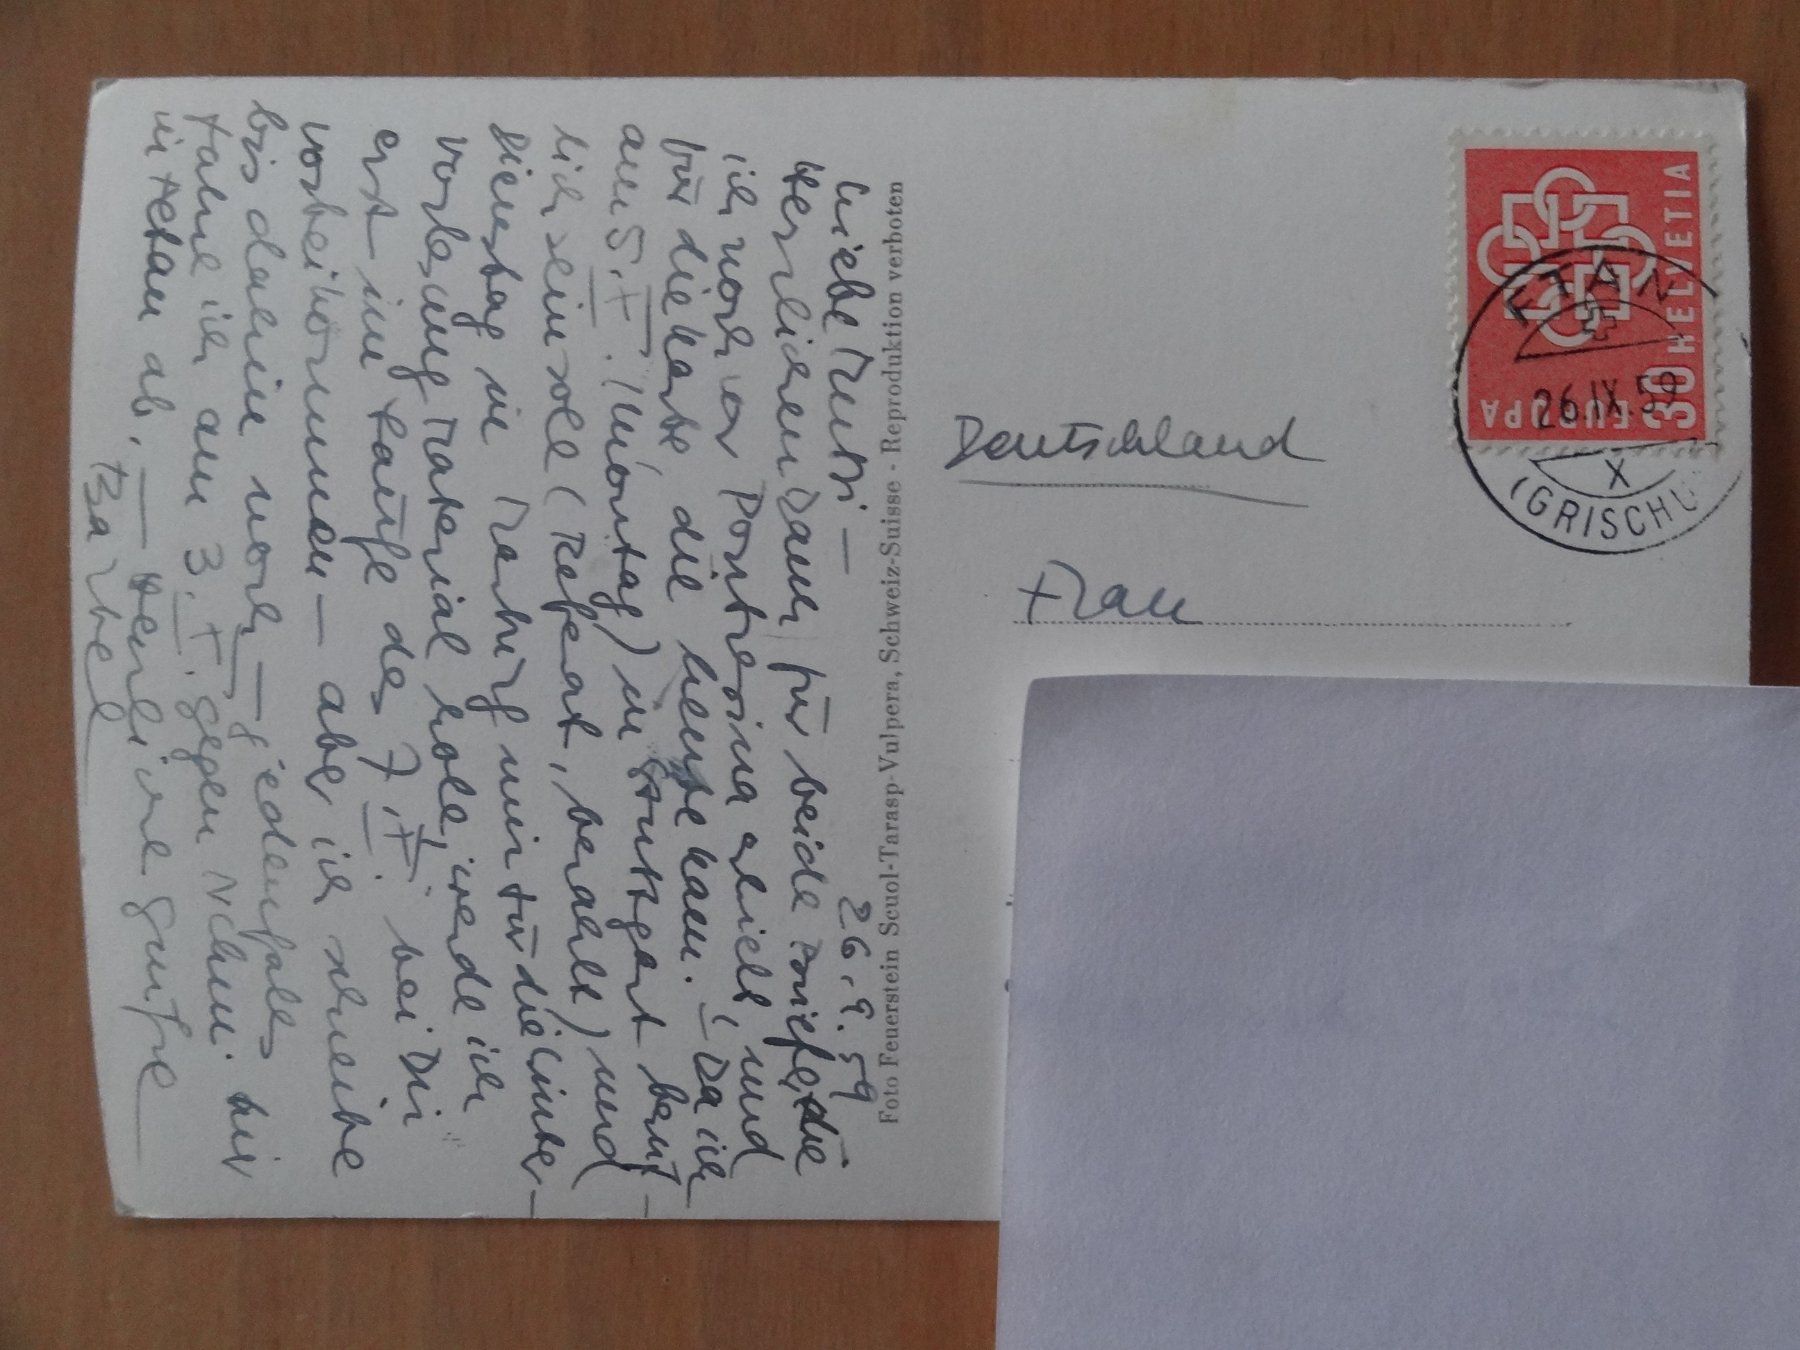 26.9.59
Liebe Mutti —
Herzlichen Dank für beide Briefe, die
ich noch in Pontresina erhielt, und
für die Karte, die heute kam. – Da ich
am 5. X. (Montag) in Stuttgart beruf-
lich sein soll (Referat, bezahlt) und
Dienstag in Marburg mir für die Winter-
vorlesung Material hole, werde ich
erst im Laufe des 7. X. bei Dir
vorbeikommen — aber ich schreibe
bis dahin noch — jedenfalls
fahre ich am 3. X. gegen Nchm. hier
in Fetan ab. — Herzliche Grüße
Bärbel
Foto Feuerstein Scuol-Tarasp-Vulpera, Schweiz-Suisse - Reproduktion verboten
Deutschland
Frau
HELVETIA
30
EUROPA
FTAN
26.IX.59
X
(GRISCHU